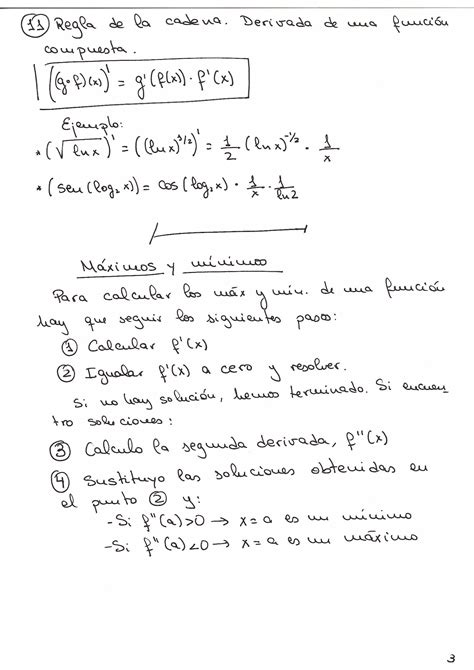 ⑪ Regla de la cadena. Derivada de una función
compuesta.
((g∘f)(x))' = g'(f(x)) · f'(x)
Ejemplo:
* (√ln x)' = ((ln x)^{1/2})' = 1/2 (ln x)^{-1/2} · 1/x
* (sen (log₂ x)) = cos (log₂ x) · 1/x · 1/ln2
Máximos y mínimos
Para calcular los máx y mín. de una función
hay que seguir los siguientes pasos:
① Calcular f'(x)
② Igualar f'(x) a cero y resolver.
Si no hay solución, hemos terminado. Si encuen
tro soluciones:
③ Calculo la segunda derivada, f''(x)
④ Sustituyo las soluciones obtenidas en
el punto ② y:
- Si f''(a)>0 → x=a es un mínimo
- Si f''(a)<0 → x=a es un máximo
3